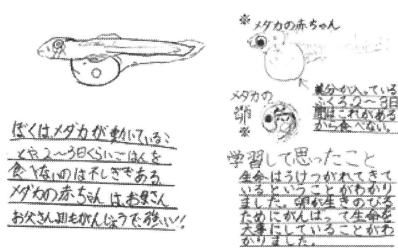 ぼくはメダカが動いているこ
とや2〜3日くらいごはんを
食べないのは不しぎである
メダカの赤ちゃんはお母さん
お父さん
がんじょうで強い!
※メダカの赤ちゃん
養分が入っている
ふくろ2〜3日
間はこれがある
から食べない。
メダカの
卵
※
学習して思ったこと
生命はうけつがれてきて
いるということがわかり
ました。卵が生きのびる
ためにがんばって生命を
大事にしていることがわ
かりました。